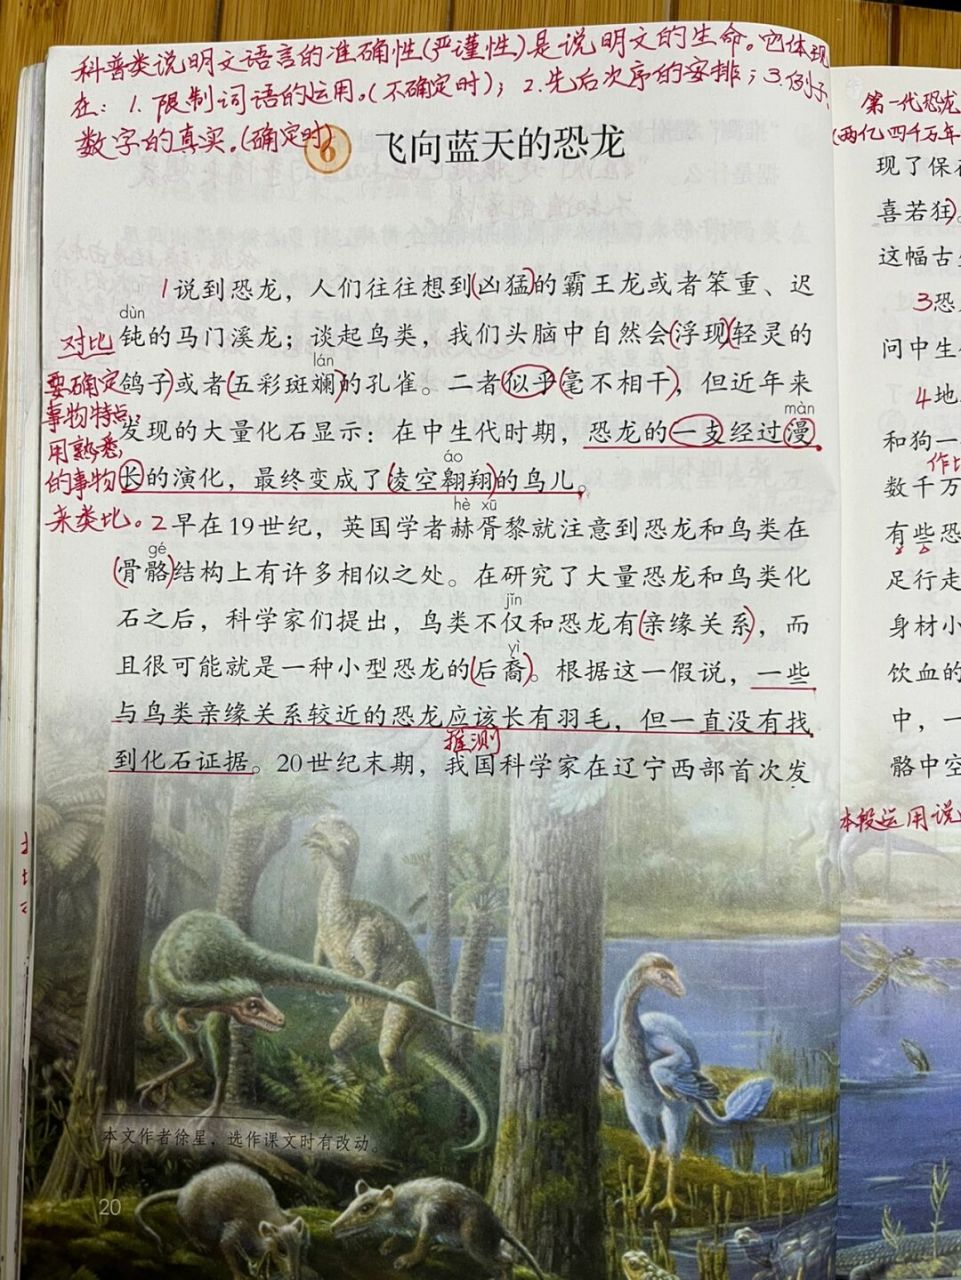 科普类说明文语言的准确性(严谨性)是说明文的生命。它体现
在：1.限制词语的运用。(不确定时)；2.先后次序的安排；3.例子、
数字的真实。(确定时)
6 飞向蓝天的恐龙
1说到恐龙，人们往往想到(凶猛)的霸王龙或者笨重、迟
dùn
钝的马门溪龙；谈起鸟类，我们头脑中自然会(浮现)(轻灵的
lán
鸽子)或者(五彩斑斓)的孔雀。二者似乎(毫不相干)，但近年来
màn
发现的大量化石显示：在中生代时期，恐龙的一支经过漫
áo
长的演化，最终变成了(凌空翱翔)的鸟儿。
hè xū
2早在19世纪，英国学者赫胥黎就注意到恐龙和鸟类在
gé
(骨骼)结构上有许多相似之处。在研究了大量恐龙和鸟类化
jǐn
石之后，科学家们提出，鸟类不仅和恐龙有(亲缘关系)，而
yì
且很可能就是一种小型恐龙的(后裔)。根据这一假说，一些
与鸟类亲缘关系较近的恐龙应该长有羽毛，但一直没有找
推测
到化石证据。20世纪末期，我国科学家在辽宁西部首次发
对比
要确定
事物特点，
用熟悉
的事物
来类比。
本文作者徐星，选作课文时有改动。
20
第一代恐龙
(两亿四千万年
现了保存
喜若狂)。
这幅古生
3恐
问中生
4地
和狗一
作比
数千万
有些恐
足行走
身材小
饮血的
中，一
骼中空
本段运用说